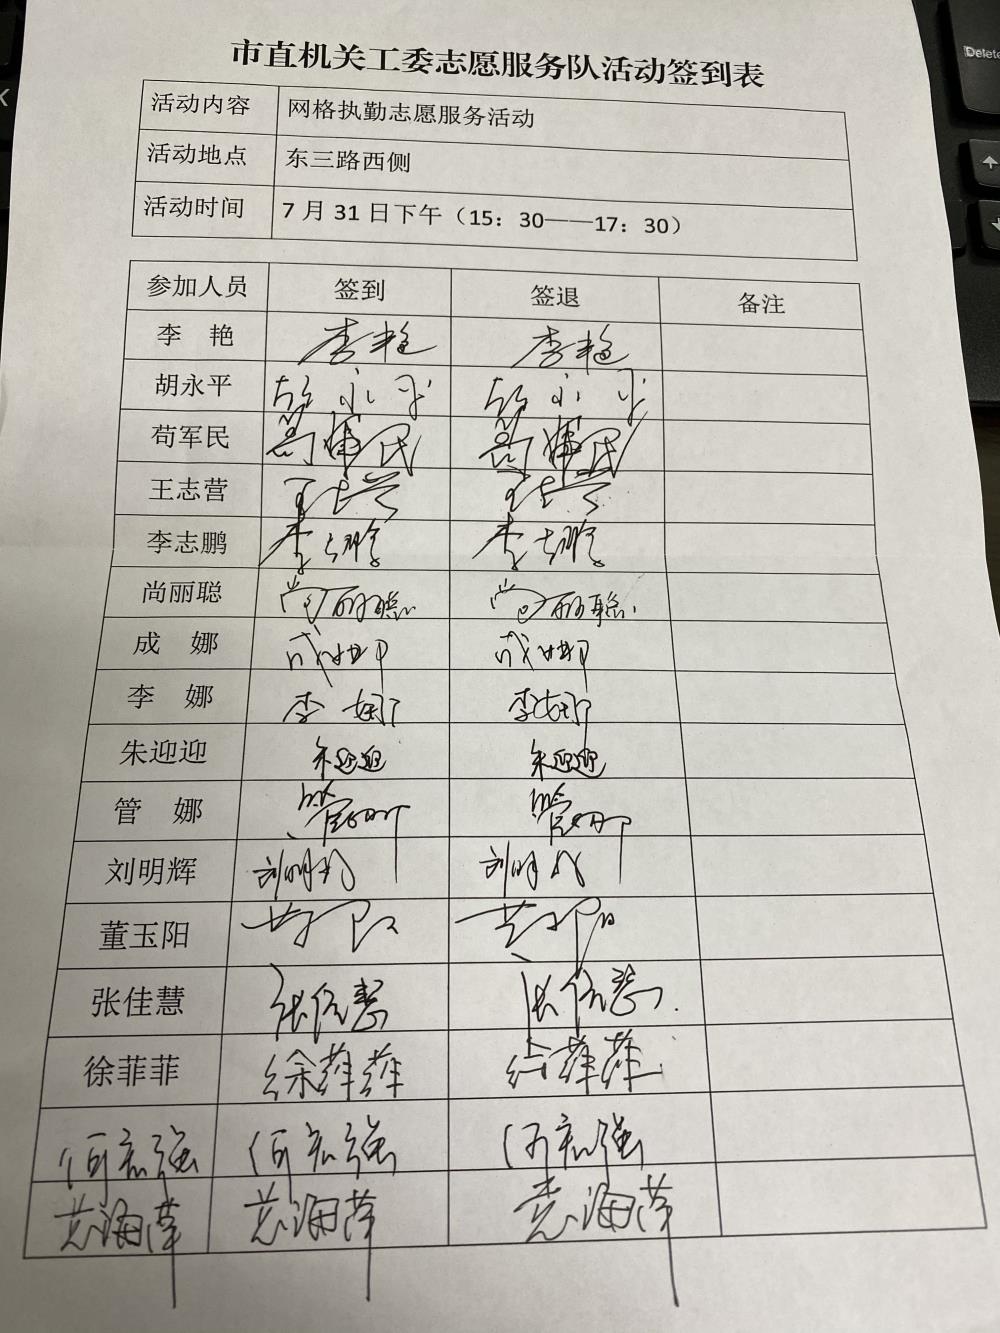 市直机关工委志愿服务队活动签到表
活动内容 网格执勤志愿服务活动
活动地点 东三路西侧
活动时间 7月31日下午（15：30——17：30）
参加人员 签到 签退 备注
李 艳 李艳 李艳
胡永平 胡永平 胡永平
苟军民 苟军民 苟军民
王志营 王志营 王志营
李志鹏 李志鹏 李志鹏
尚丽聪 尚丽聪 尚丽聪
成 娜 成娜 成娜
李 娜 李娜 李娜
朱迎迎 朱迎迎 朱迎迎
管 娜 管娜 管娜
刘明辉 刘明辉 刘明辉
董玉阳
张佳慧 张佳慧 张佳慧
徐菲菲 徐菲菲 徐菲菲
何志强 何志强 何志强
海萍 海萍 海萍
Delete